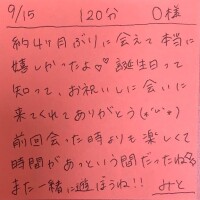 9/15 120分 O様
約4ヶ月ぶりに会えて本当に
嬉しかったよ♡♡誕生日って
知って、お祝いしに会いに
来てくれてありがとう(*˘︶˘*)
前回会った時よりも楽しくて
時間があっという間だったね
また一緒に遊ぼうね!! みと